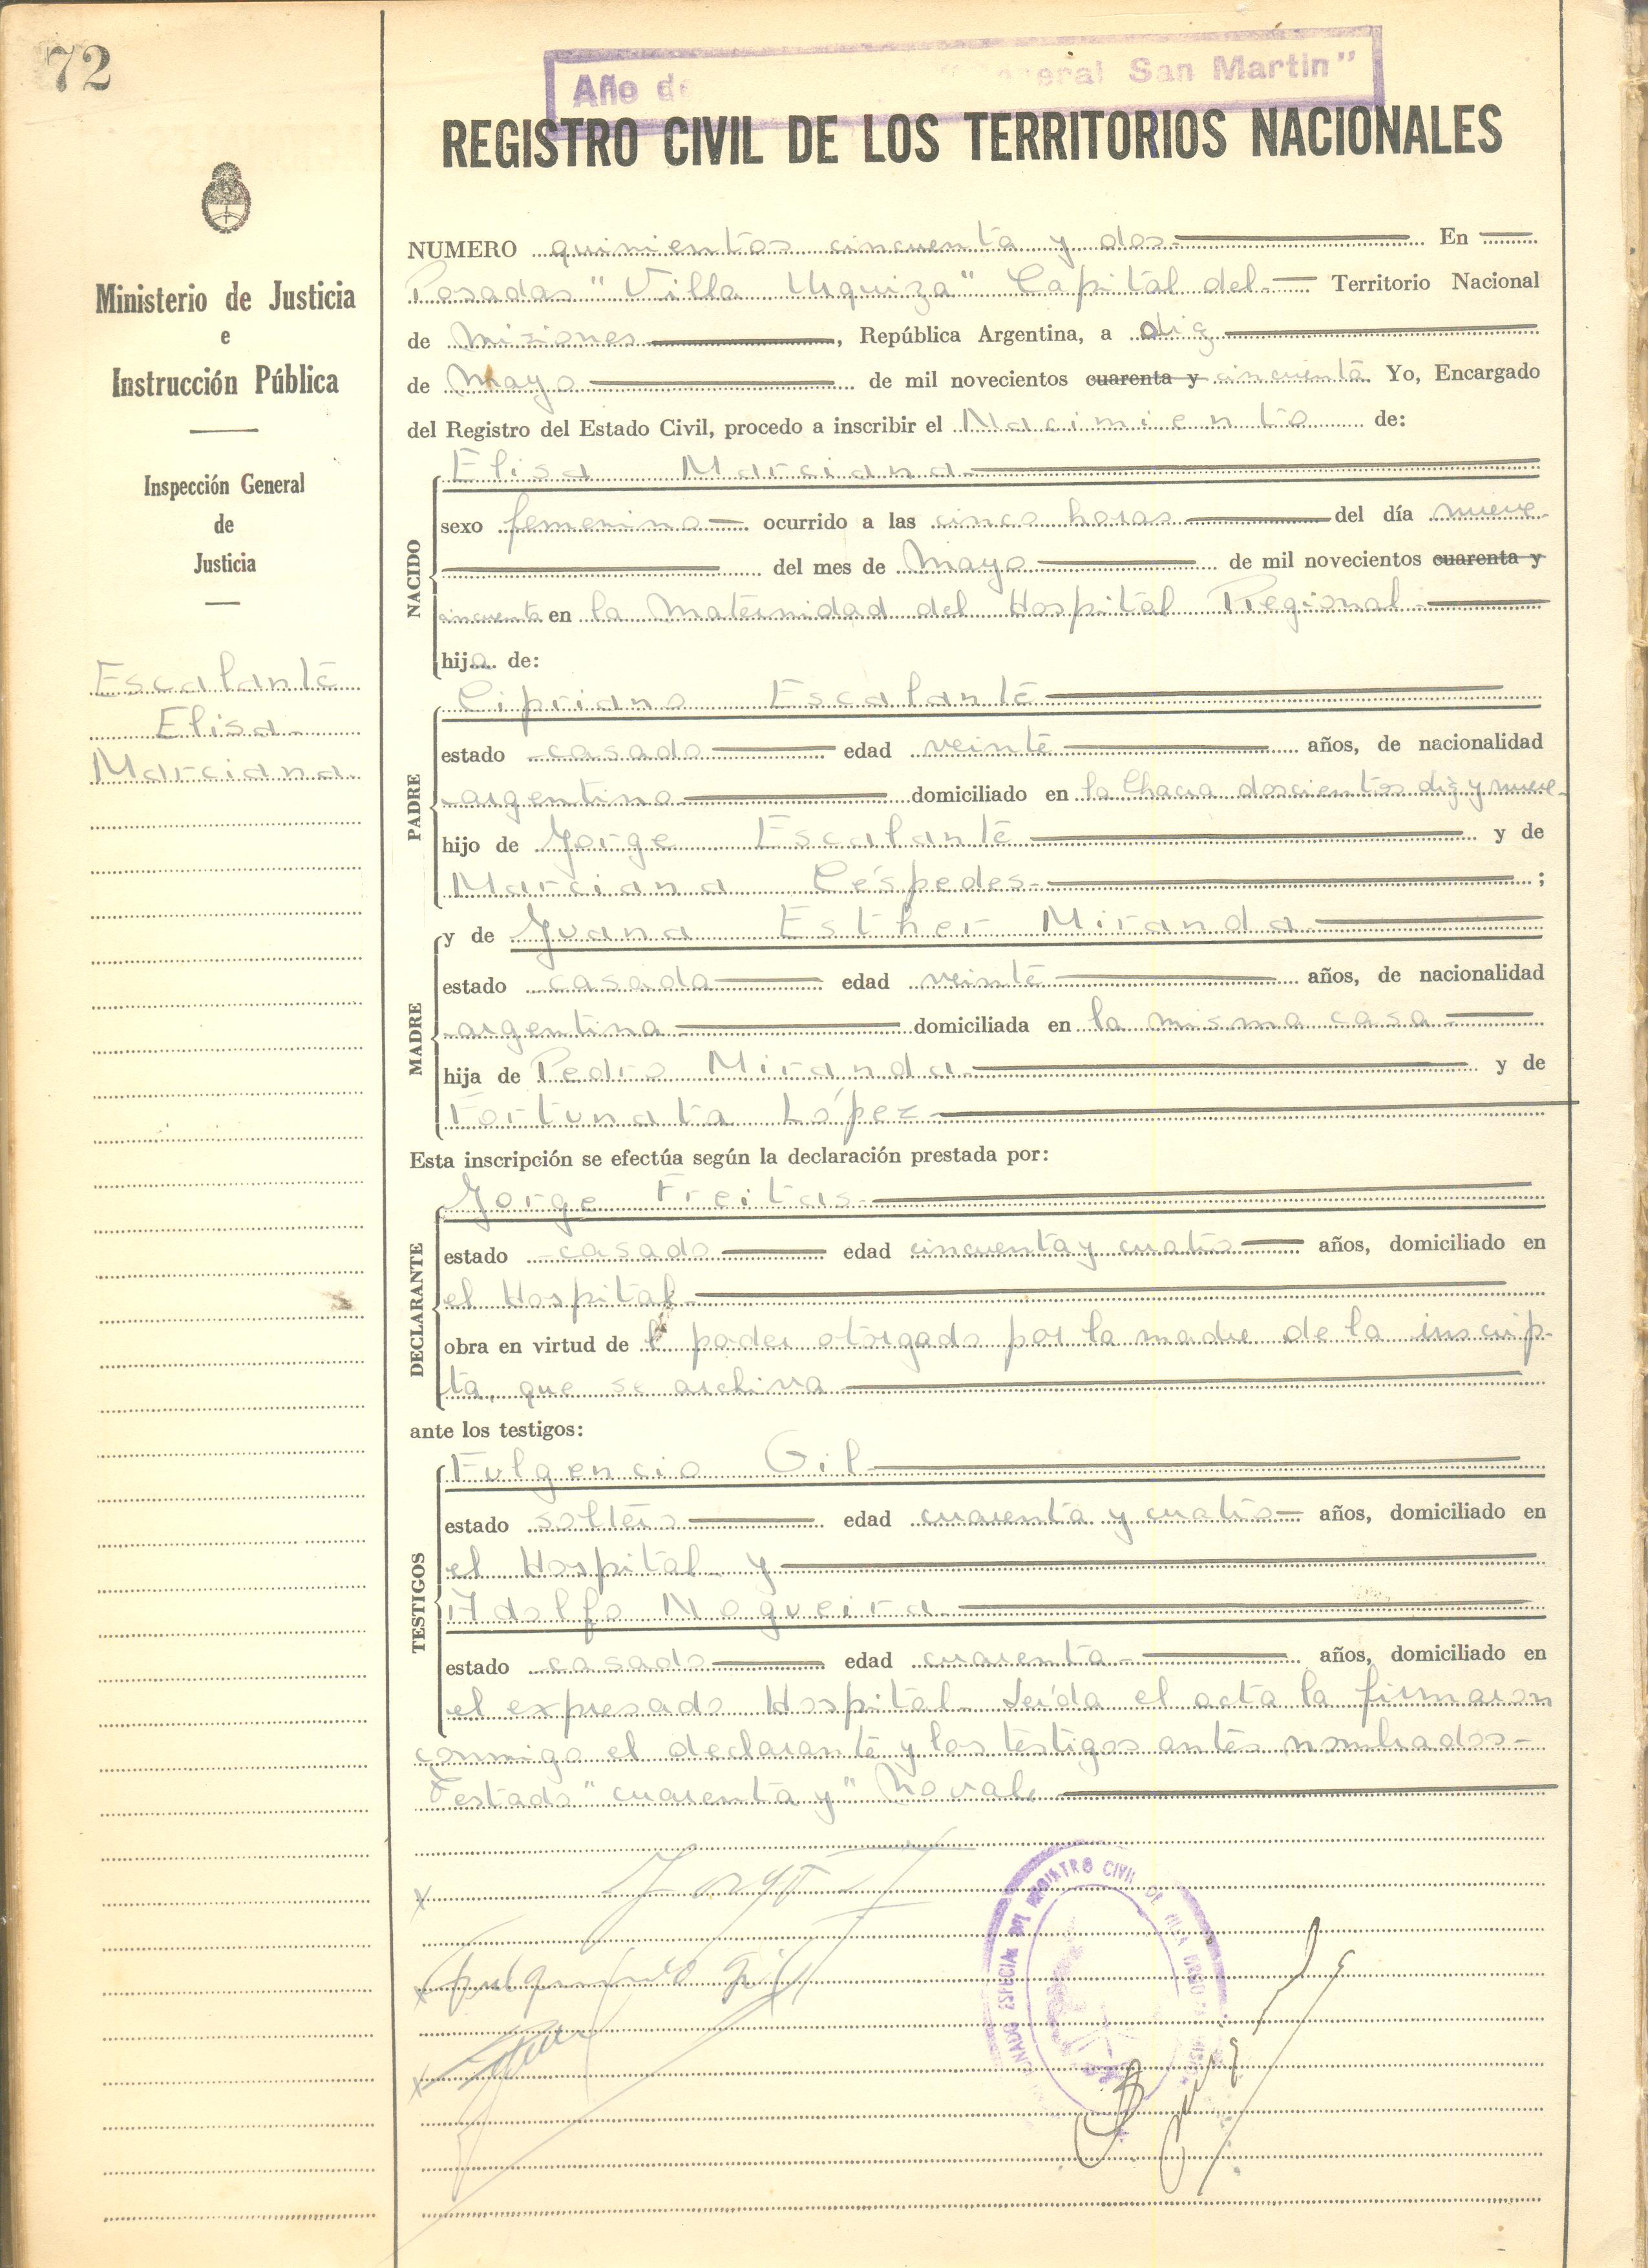 72
Año de "General San Martin"
REGISTRO CIVIL DE LOS TERRITORIOS NACIONALES
Ministerio de Justicia
e
Instrucción Pública
Inspección General
de
Justicia
Escalante
Elisa
Marciana
NUMERO quinientos cincuenta y dos En
Posadas "Villa Urquiza" Capital del Territorio Nacional
de Misiones, República Argentina, a diez
de Mayo de mil novecientos cuarenta y cincuenta Yo, Encargado
del Registro del Estado Civil, procedo a inscribir el Nacimiento de:
NACIDO
Elisa Marciana
sexo femenino ocurrido a las cinco horas del día nueve
del mes de Mayo de mil novecientos cuarenta y
cincuenta en la Maternidad del Hospital Regional
hija de:
PADRE
Cipriano Escalante
estado casado edad veinte años, de nacionalidad
argentino domiciliado en la Chacra doscientos diez y nueve
hijo de Jorge Escalante y de
Marciana Céspedes ;
MADRE
y de Juana Esther Miranda
estado casada edad veinte años, de nacionalidad
argentina domiciliada en la misma casa
hija de Pedro Miranda y de
Fortunata López
Esta inscripción se efectúa según la declaración prestada por:
DECLARANTE
Jorge Freitas
estado casado edad cincuenta y cuatro años, domiciliado en
el Hospital
obra en virtud de poder otorgado por la madre de la inscrip-
ta, que se archiva
ante los testigos:
TESTIGOS
Fulgencio Gil
estado soltero edad cuarenta y cuatro años, domiciliado en
el Hospital y
Adolfo Nogueira
estado casado edad cuarenta años, domiciliado en
el expresado Hospital. Leída el acta la firmaron
conmigo el declarante y los testigos antes nombrados-
Testado "cuarenta y" No vale
Fulgencio Gil
REGISTRO CIVIL DE